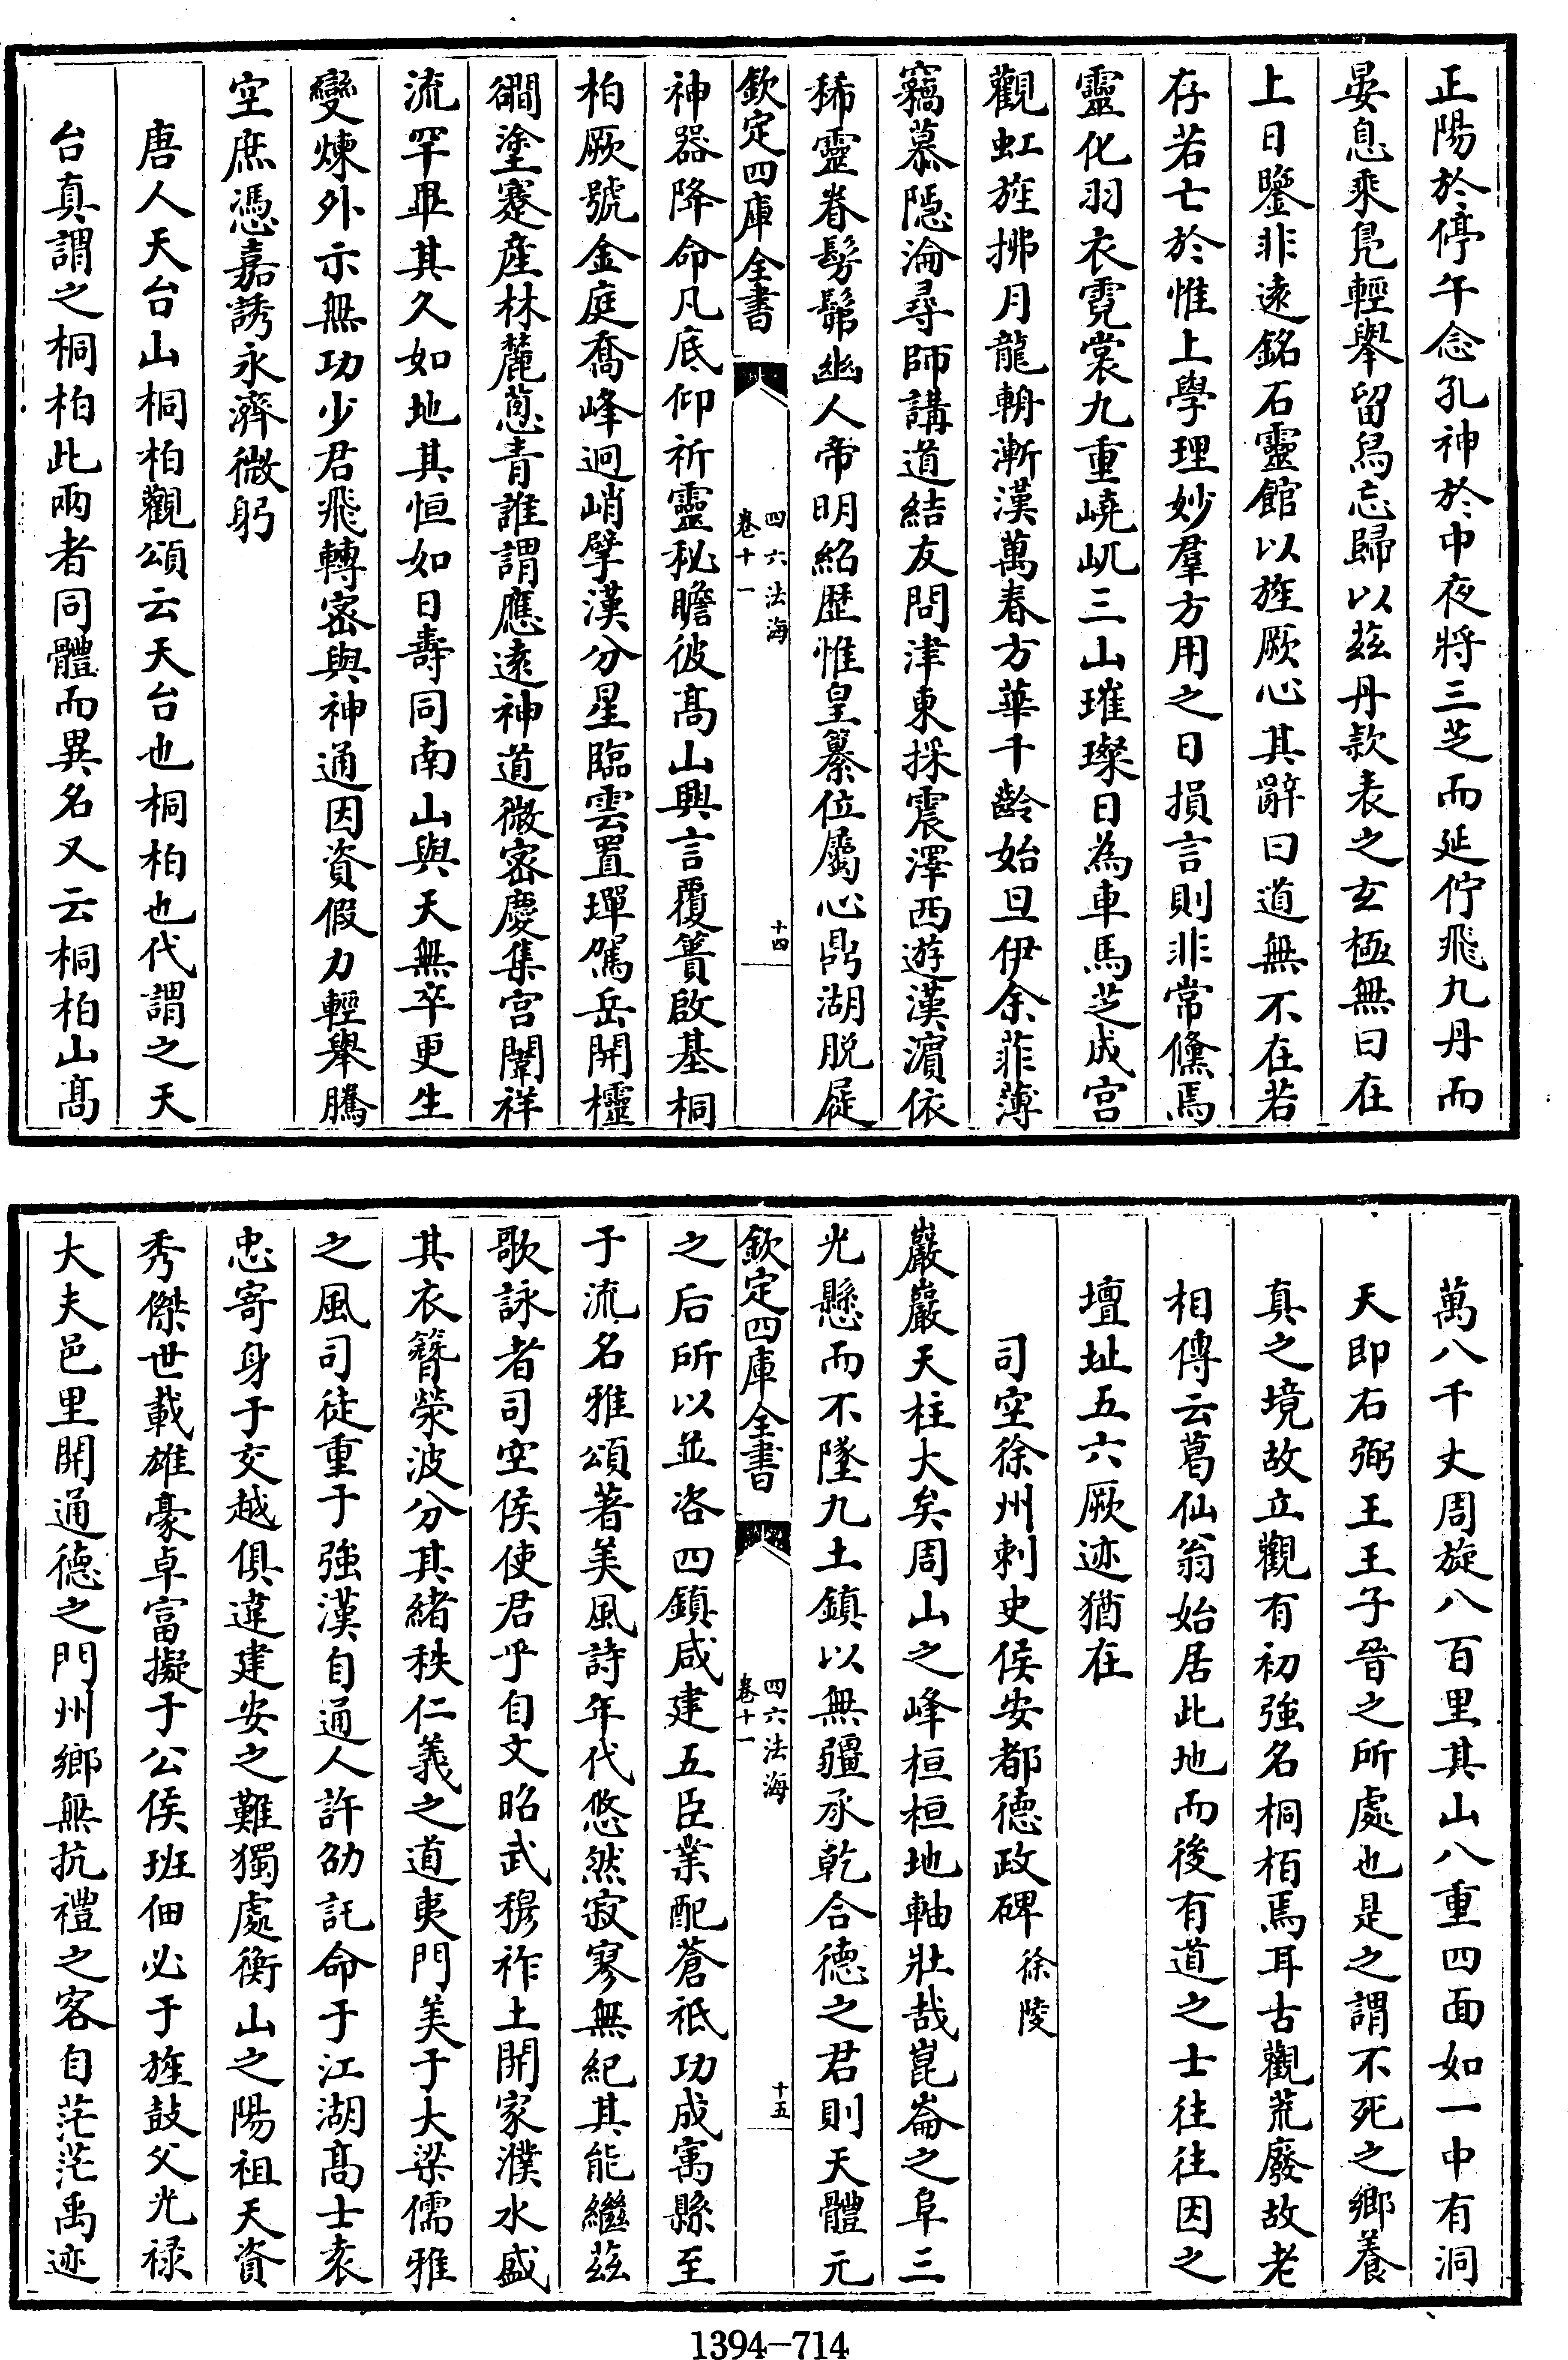 正陽於停午念孔神於中夜將三芝而延佇飛九丹而
晏息乘鳧輕舉留舄忘歸以茲丹款表之玄極無曰在
上日鑒非遠銘石靈館以旌厥心其辭曰道無不在若
存若亡於惟上學理妙羣方用之日損言則非常儵焉
靈化羽衣霓裳九重嶢屼三山璀璨日為車馬芝成宮
觀虹旌拂月龍輈漸漢萬春方華千齡始旦伊余菲薄
竊慕隱淪尋師講道結友問津東採震澤西遊漢濵依
稀靈眷髣髴幽人帝明紹歴惟皇纂位屬心鼎湖脱屣
欽定四庫全書
四六法海
卷十一
十四
神器降命凡底仰祈靈秘瞻彼髙山興言覆簣啟基桐
柏厥號金庭喬峰迥峭擘漢分星臨雲置墠駕岳開櫺
礀塗蹇産林麓葱青誰謂應遠神道微密慶集宮闈祥
流罕畢其久如地其恒如日壽同南山與天無卒更生
變煉外示無功少君飛轉密與神通因資假力輕舉騰
空庶憑嘉誘永濟微躬
唐人天台山桐柏觀頌云天台也桐柏也代謂之天
台真謂之桐柏此兩者同體而異名又云桐柏山髙
萬八千丈周旋八百里其山八重四面如一中有洞
天即右弼王王子晉之所處也是之謂不死之鄉養
真之境故立觀有初強名桐栢焉耳古觀荒廢故老
相傳云葛仙翁始居此地而後有道之士往往因之
壇址五六厥迹猶在
司空徐州刺史侯安都德政碑 徐陵
巖巖天柱大矣周山之峰桓桓地軸壯哉崑崙之阜三
光懸而不墜九土鎮以無疆承乾合德之君則天體元
欽定四庫全書
四六法海
卷十一
十五
之后所以並咨四鎮咸建五臣業配蒼祇功成寓縣至
于流名雅頌著美風詩年代悠然寂寥無紀其能繼茲
歌詠者司空侯使君乎自文昭武穆祚土開家濮水盛
其衣簪滎波分其緒秩仁義之道夷門美于大梁儒雅
之風司徒重于強漢自通人許劭託命于江湖髙士袁
忠寄身于交越俱違建安之難獨處衡山之陽祖天資
秀傑世載雄豪卓富擬于公侯班佃必于旌鼓父光禄
大夫邑里開通德之門州鄉無抗禮之客自茫茫禹迹
1394-714